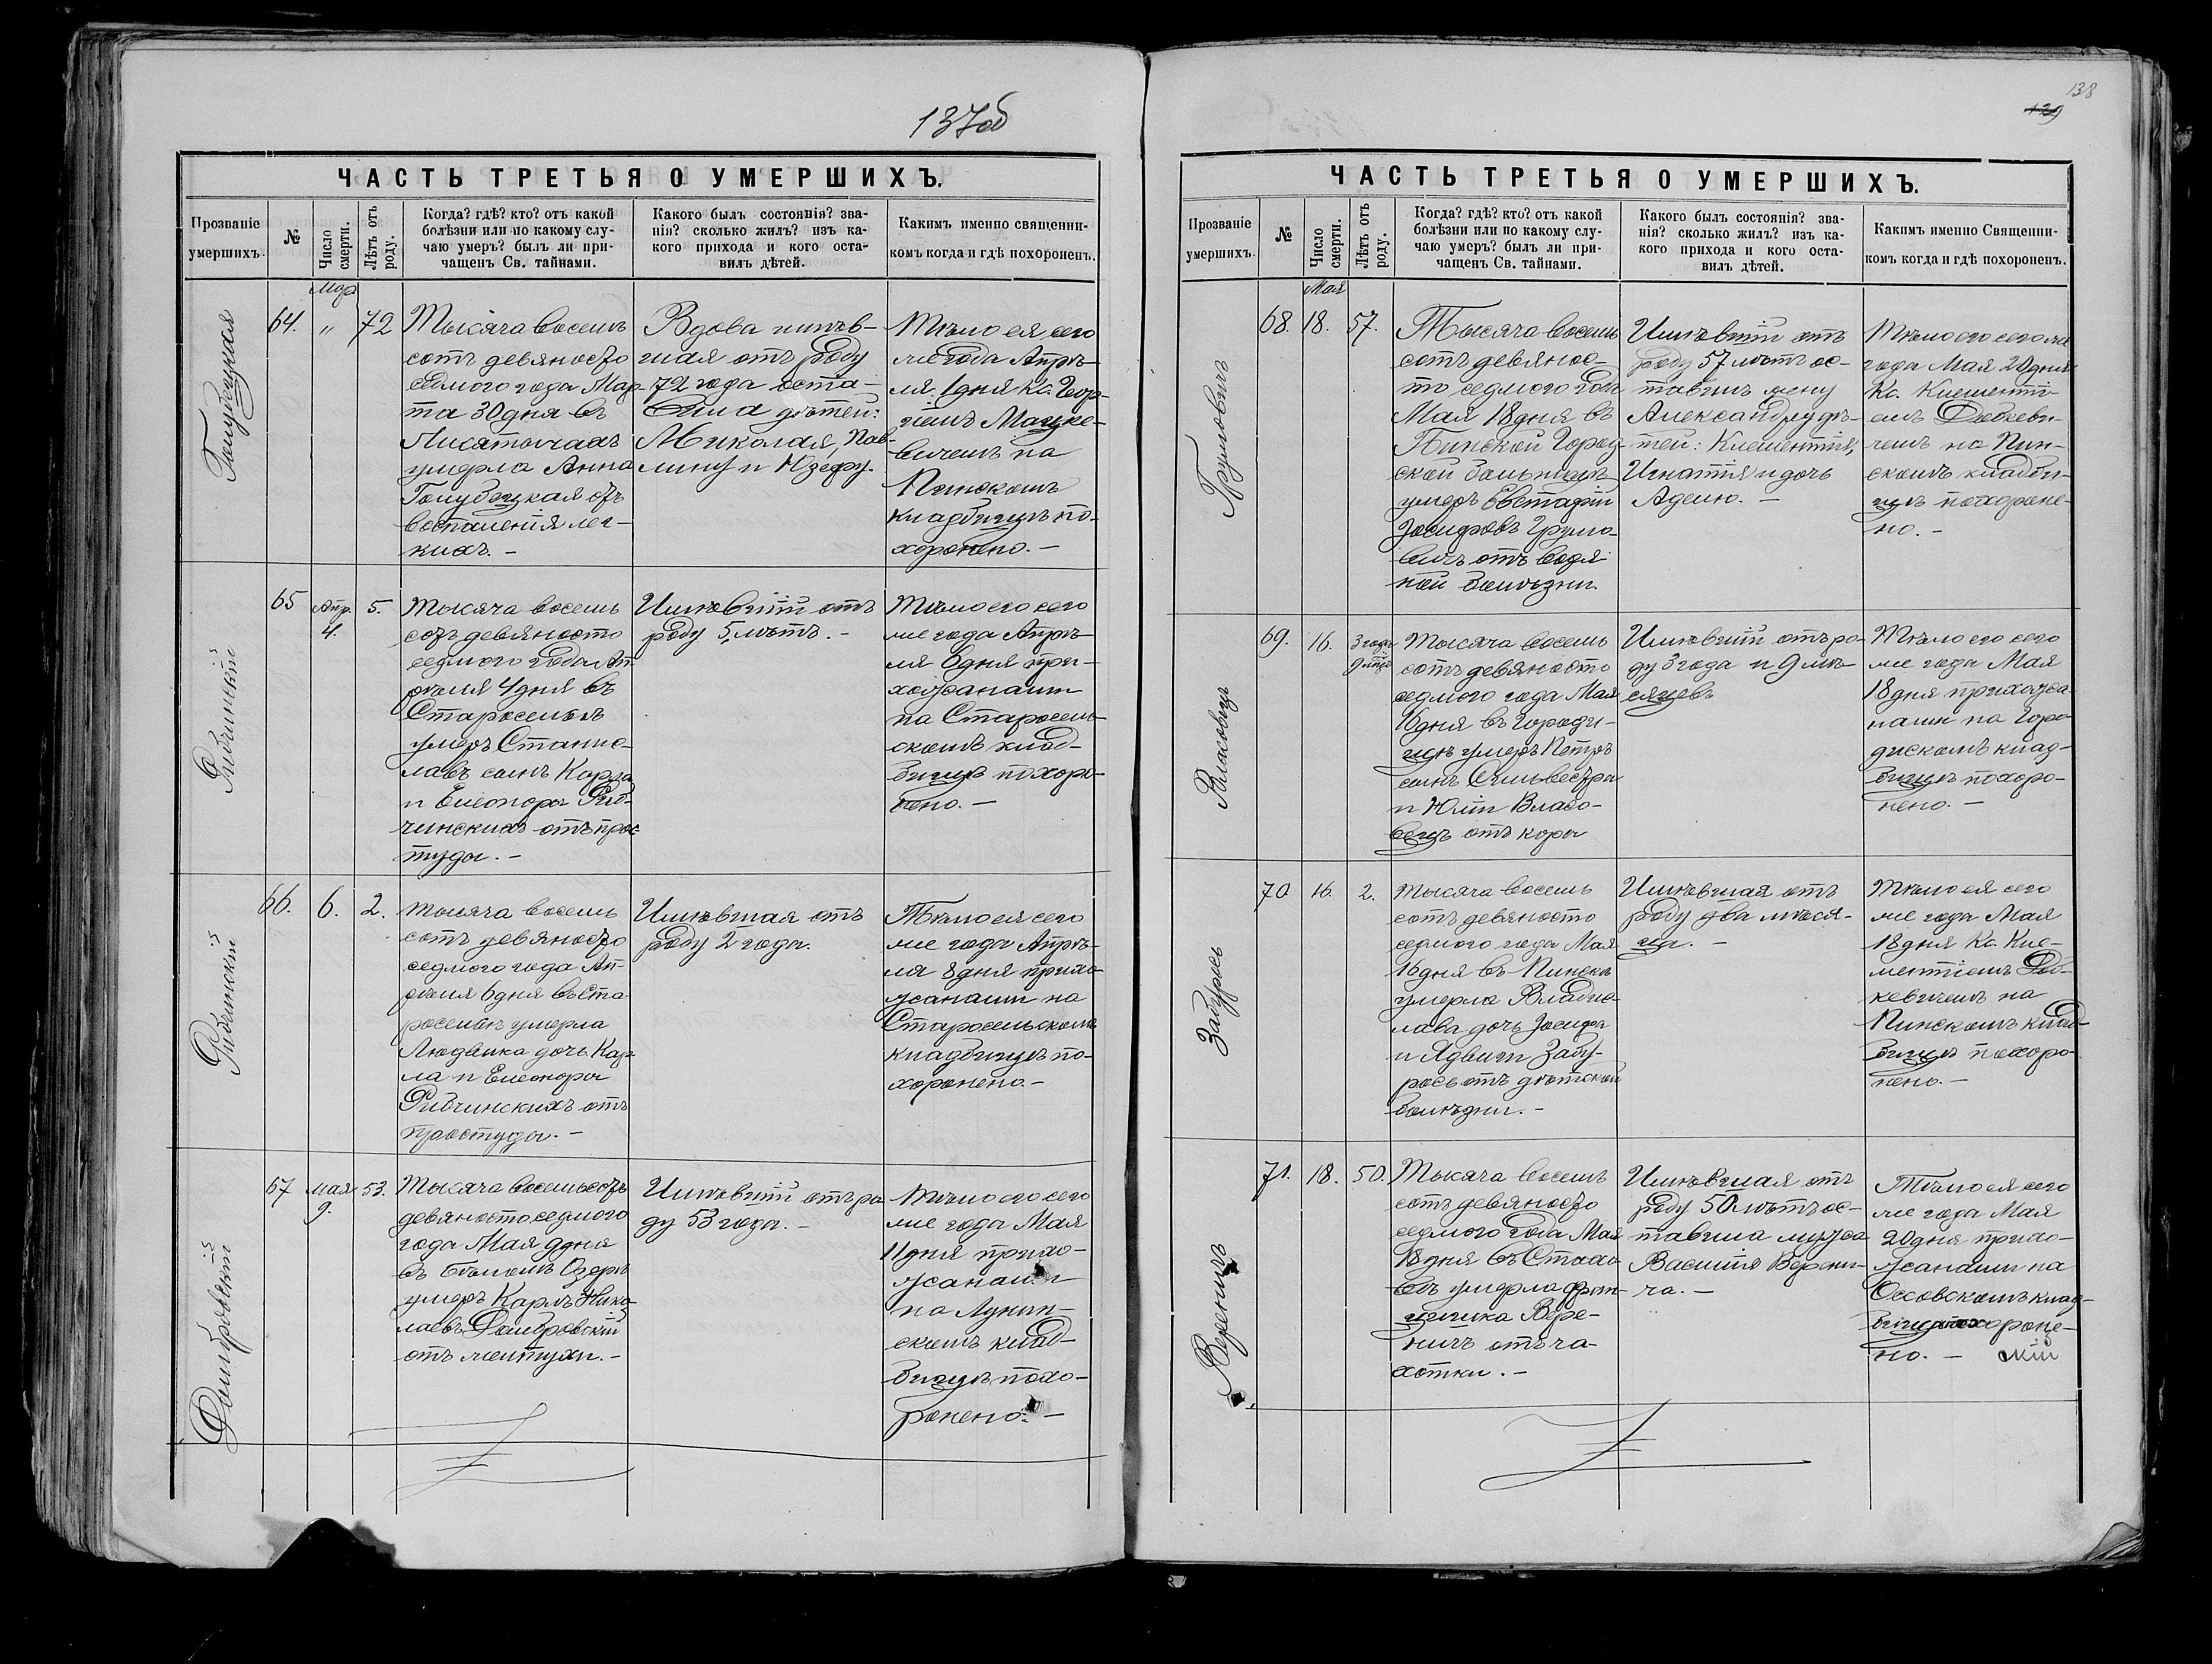 137об
ЧАСТЬ ТРЕТЬЯ О УМЕРШИХЪ.
Прозваніе умершихъ.
№
Число смерти.
Лѣтъ отъ роду.
Когда? гдѣ? кто? отъ какой
болѣзни или по какому слу-
чаю умеръ? былъ ли при-
чащенъ Св. тайнами.
Какого былъ состоянія? зва-
нія? сколько жилъ? изъ ка-
кого прихода и кого оста-
вилъ дѣтей.
Какимъ именно священни-
комъ когда и гдѣ похороненъ.
Голубецкая
64.
Мар
"
72
Тысяча восемь
сотъ девяносто
седмого года Мар-
та 30 дня въ
умерла Анна
Голубецкая отъ
воспаленія лег-
кихъ. -
Вдова имѣв-
шая отъ роду
72 года оста-
вила дѣтей:
Миколая, Пав-
лину и Юзефу.
Тѣло ея сего
же года Апрѣ-
ля 1 дня Кс. Геор-
гіемъ Мацке-
вичемъ на
Пинскомъ
кладбищѣ по-
хоронено. -
Рибчинскій
65
Апр.
4.
5.
Тысяча восемь
сотъ девяносто
седмого года Ап-
рѣля 4 дня въ
Старосельѣ
умеръ Станис-
лавъ сынъ Карла
и Елеоноры Риб-
чинскихъ отъ прос
туды. -
Имѣвшій отъ
роду 5 лѣтъ. -
Тѣло его сего
же года Апрѣ-
ля 6 дня при-
хожанами
на Старосель-
скомъ клад-
бищѣ похоро-
нено. -
Рибчинскій
66.
6.
2.
Тысяча восемь
сотъ девяносто
седмого года Ап-
рѣля 6 дня въ Ста
росельѣ умерла
Людвика дочь Кар-
ла и Елеоноры
Рибчинскихъ отъ
простуды. -
Имѣвшая отъ
роду 2 года.
Тѣло ея сего
же года Апрѣ-
ля 8 дня прихо-
жанами на
Старосельскомъ
кладбищѣ по-
хоронено. -
Домбровскій
67
Мая
9.
53.
Тысяча восемьсотъ
девяносто седмого
года Мая 9 дня
въ Бѣломъ Озерѣ
умеръ Карлъ Нико
лаевъ Домбровскій
отъ желтухи. -
Имѣвшій отъ ро
ду 53 года. -
Тѣло его сего
же года Мая
11 дня прихо-
жанами
на Лунин-
скомъ клад-
бищѣ похо-
ронено. -
138
139
ЧАСТЬ ТРЕТЬЯ О УМЕРШИХЪ.
Прозваніе умершихъ.
№
Число смерти.
Лѣтъ отъ роду.
Когда? гдѣ? кто? отъ какой
болѣзни или по какому слу-
чаю умеръ? былъ ли при-
чащенъ Св. тайнами.
Какого былъ состоянія? зва-
нія? сколько жилъ? изъ ка-
кого прихода и кого оста-
вилъ дѣтей.
Какимъ именно Священни-
комъ когда и гдѣ похороненъ.
Грумовичъ
68.
Мая
18.
57.
Тысяча восемь
сотъ девянос-
то седмого года
Мая 18 дня въ
Пинской Город-
ской больницѣ
умеръ Евстафій
Іосифовъ Грумо-
вичъ отъ водя
ной болѣзни.
Имѣвшій отъ
роду 57 лѣтъ ос-
тавилъ жену
Александру дѣ-
тей: Клементія,
Игнатія и дочь
Аделю. -
Тѣло его сего же
года Мая 20 дня
Кс. Клементі-
емъ Добкеви-
чемъ на Пин-
скомъ кладби-
щѣ похороне-
но. -
Власовецъ
69.
16.
3 года
9 мѣс
Тысяча восемь
сотъ девяносто
седмого года Мая
16 дня въ Городи-
щѣ умеръ Петръ
сынъ Сильвестра
и Юліи Власо-
вецъ отъ кори
Имѣвшій отъ ро-
ду 3 года и 9 мѣ-
сяцевъ
Тѣло его сего
же года Мая
18 дня прихожа
нами на Горо
дискомъ клад-
бищѣ похоро-
нено. -
Забурось
70
16.
2.
Тысяча восемь
сотъ девяносто
седмого года Мая
16 дня въ Пинскѣ
умерла Владис-
лава дочь Іосифа
и Ядвиги Забу-
рось отъ дѣтской
болѣзни. -
Имѣвшая отъ
роду два мѣся-
ца. -
Тѣло ея сего
же года Мая
18 дня Кс. Кле-
ментіемъ Доб-
кевичемъ на
Пинскомъ клад-
бищѣ похоро-
нено. -
Вереничъ
71.
18.
50.
Тысяча восемь
сотъ девяносто
седмого года Мая
18 дня въ Стахо
вѣ умерла Фран-
цишка Вере-
ничъ отъ ча-
хотки. -
Имѣвшая отъ
роду 50 лѣтъ ос-
тавила мужа
Василія Верени-
ча. -
Тѣло ея сего
же года Мая
20 дня прихо-
жанами на
Оссовскомъ клад-
бищѣ похороне-
но. -